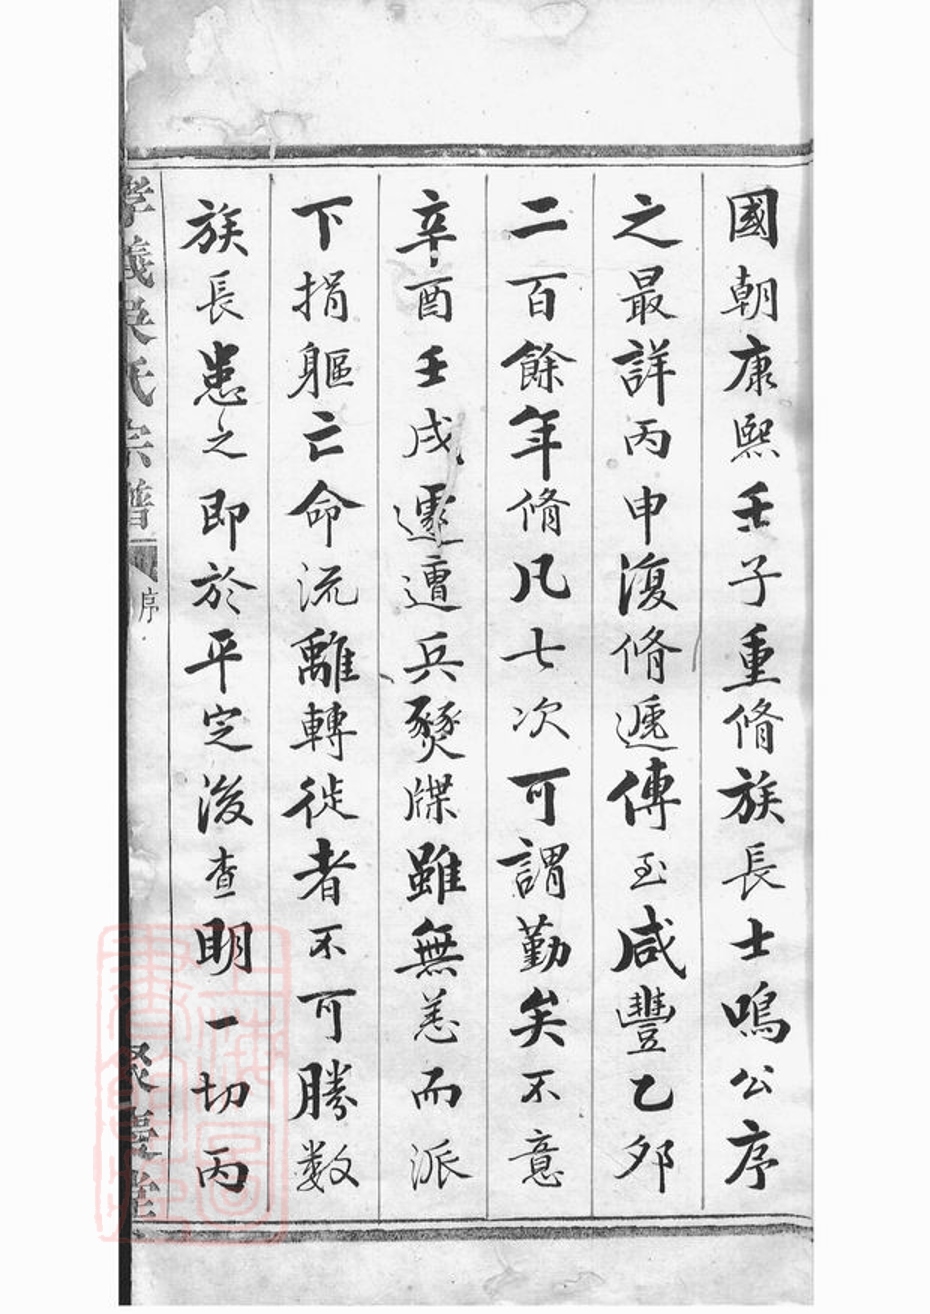 國朝康熙壬子重脩族長士鳴公序
之最詳丙申復脩遞傳至咸豐乙夘
二百餘年脩凡七次可謂勤矣不意
辛酉壬戌遽遭兵燹牒雖無恙而派
下捐軀亡命流離轉徙者不可勝数
族長患之即於平定後查明一切丙
孝義吳氏宗譜
序
聚慶堂
上海圖書館藏